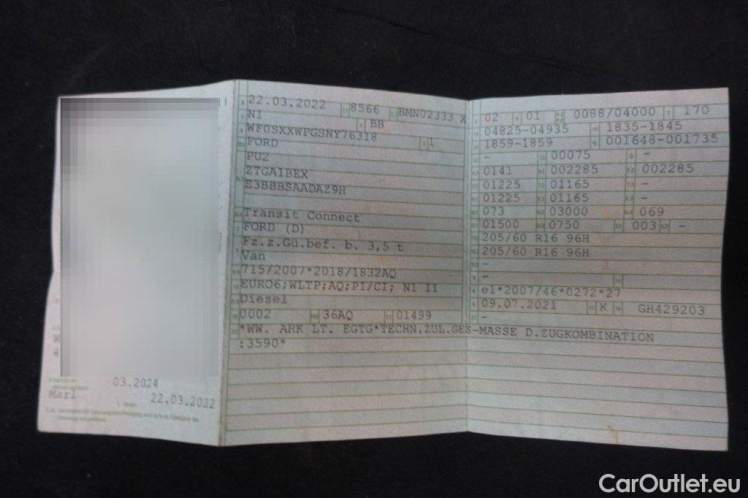 22.03.2022 8566 BMN02333 X
N1 BB
WF0SXXWPGSNY76318 1
FORD
PU2
ZTGAIBEX
E3BBBSAADAZ9H
Transit Connect
FORD (D)
Fz.z.Gü.bef. b. 3,5 t
Van
715/2007*2018/1832AQ
EURO6;WLTP;AQ;PI/CI; N1 II
Diesel
0002 36AQ 01499
*WW. ARK LT. EGTG*TECHN.ZUL.GES-MASSE D.ZUGKOMBINATION
:3590*
02 01 0088/04000 170
04825-04935 1835-1845
1859-1859 001648-001735
- 00075 -
0141 002285 002285
01225 01165 -
01225 01165 -
073 03000 069
01500 0750 003 -
205/60 R16 96H
205/60 R16 96H
-
-
e1*2007/46*0272*27
09.07.2021 K GH429203
-
03.2024
Marl
22.03.2022
CarOutlet.eu